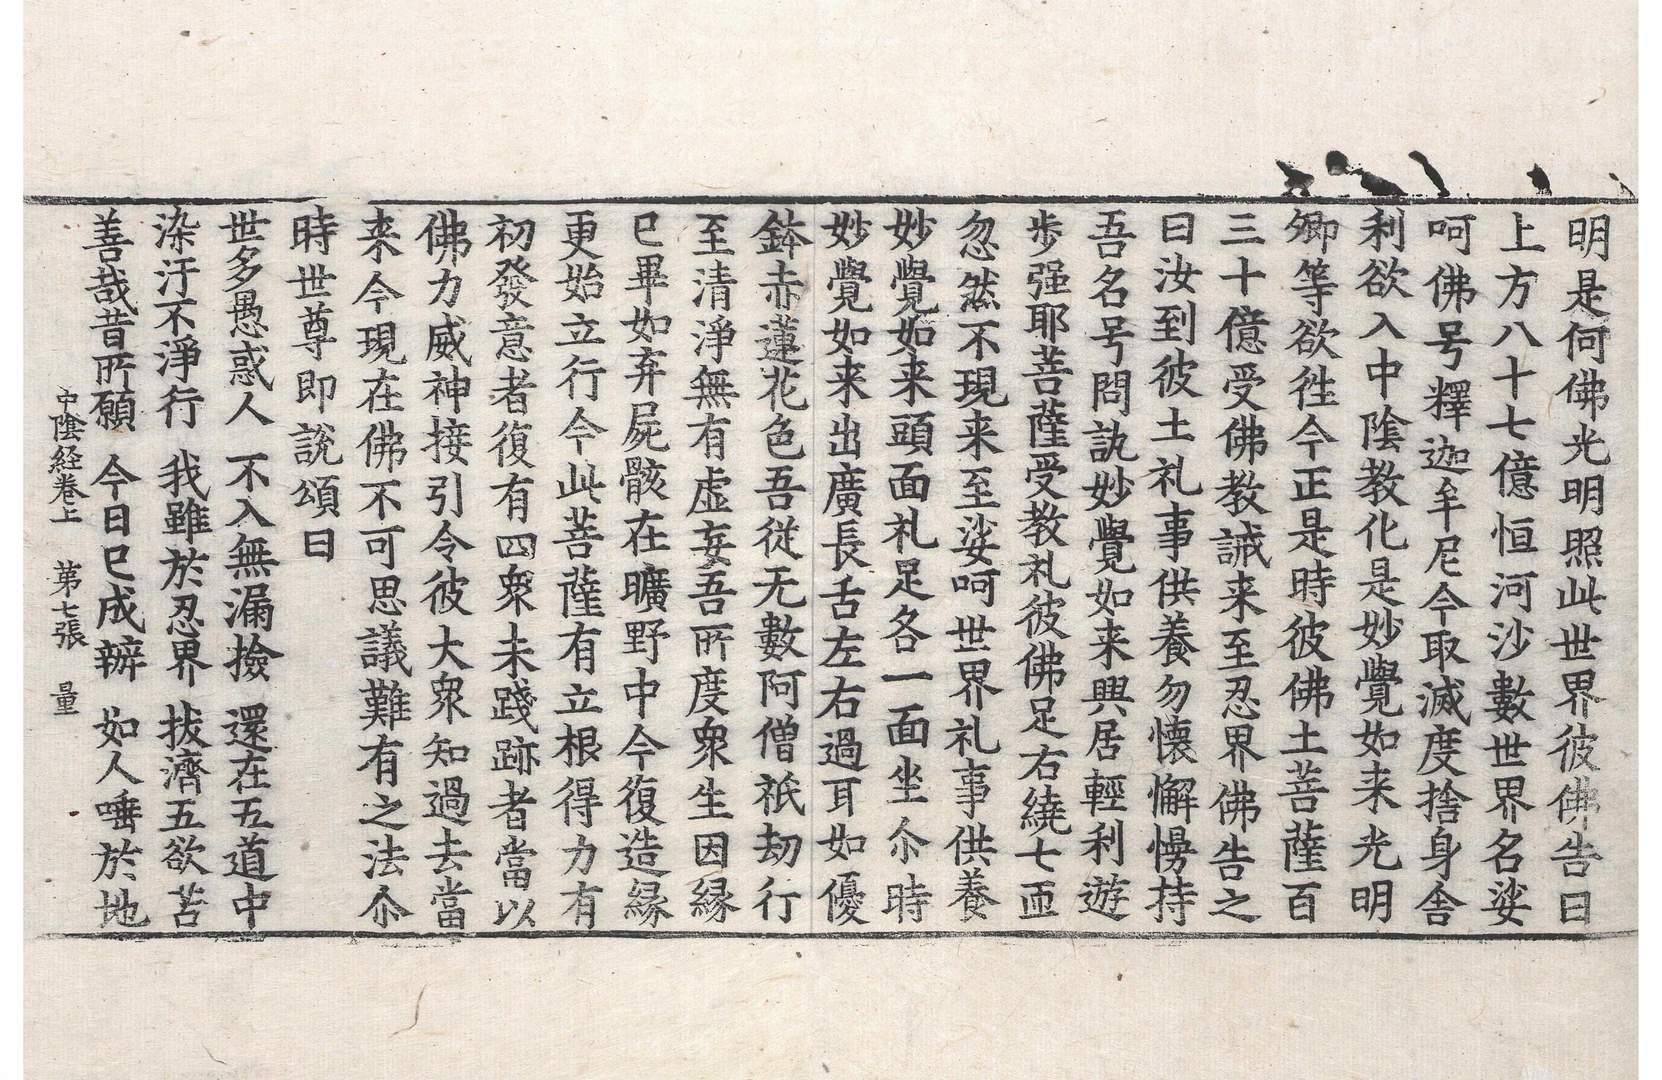 明是何佛光明照此世界彼佛告曰
上方八十七億恒河沙數世界名娑
呵佛号釋迦牟尼今取滅度捨身舍
利欲入中陰教化是妙覺如来光明
卿等欲徃今正是時彼佛土菩薩百
三十億受佛教誡来至忍界佛告之
曰汝到彼土礼事供養勿懐懈慢持
吾名号問訊妙覺如来興居輕利遊
步强耶菩薩受教礼彼佛足右繞七匝
忽然不現来至娑呵世界礼事供養
妙覺如来頭面礼足各一面坐尒時
妙覺如来出廣長舌左右過耳如優
鉢赤蓮花色吾従无數阿僧祇劫行
至清淨無有虛妄吾所度衆生因緣
已畢如弃屍骸在曠野中今復造緣
更始立行今此菩薩有立根得力有
初發意者復有四衆未踐跡者當以
佛力威神接引令彼大衆知過去當
来今現在佛不可思議難有之法尒
時世尊即說頌曰
世多愚惑人 不入無漏撿 還在五道中
染汙不淨行 我雖於忍界 拔濟五欲苦
善哉昔所願 今日已成辦 如人唾於地
中陰経卷上 第七張 量